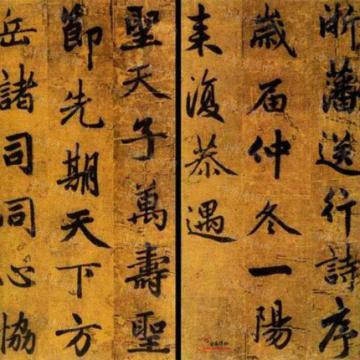 浙藩送行詩序
歲届仲冬一陽
来復恭遇
聖天子萬壽聖
節先期天下方
岳諸司同心協